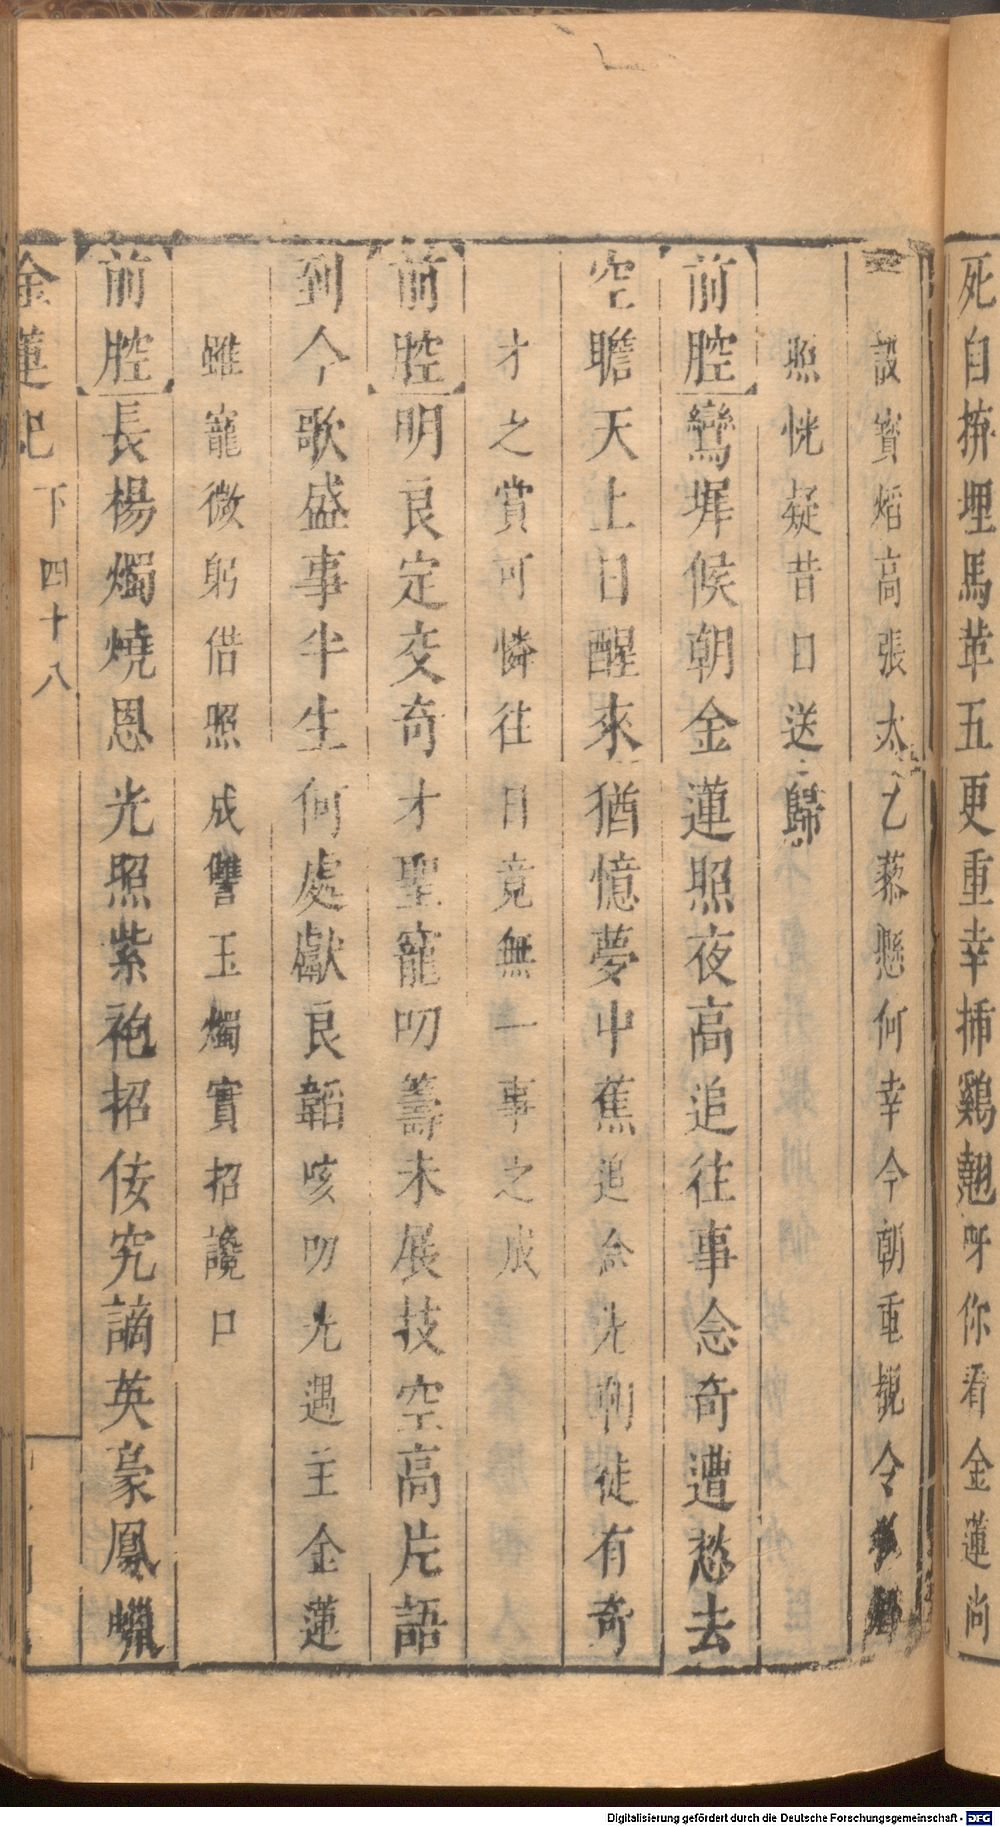 死自拚埋馬革五更重幸揷鷄翹呀你看金蓮尚
設寳熖高張太乙藜懸何幸今朝重覩令
照恍疑昔日送歸
前腔鸞墀候朝金蓮照夜高追往事念奇遭愁去
空瞻天上日醒來猶憶夢中蕉追念先朝徒有奇
才之賞可憐往日竟無一事之成
前腔明良定交奇才聖寵叨籌未展技空高片語
到今歌盛事半生何處獻良韜咳叨光遇主金蓮
雖寵微躬借照成讐玉燭實招讒口
前腔長楊燭燒恩光照紫袍招侫究謫英豪鳳蠟
金蓮記 下 四十八
Digitalisierung gefördert durch die Deutsche Forschungsgemeinschaft - DFG